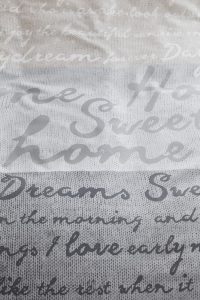 enjoy the beautiful
daydream
me Ho
Sweet
home
Dreams Swe
n the morning and
ngs I love early m
like the rest when it